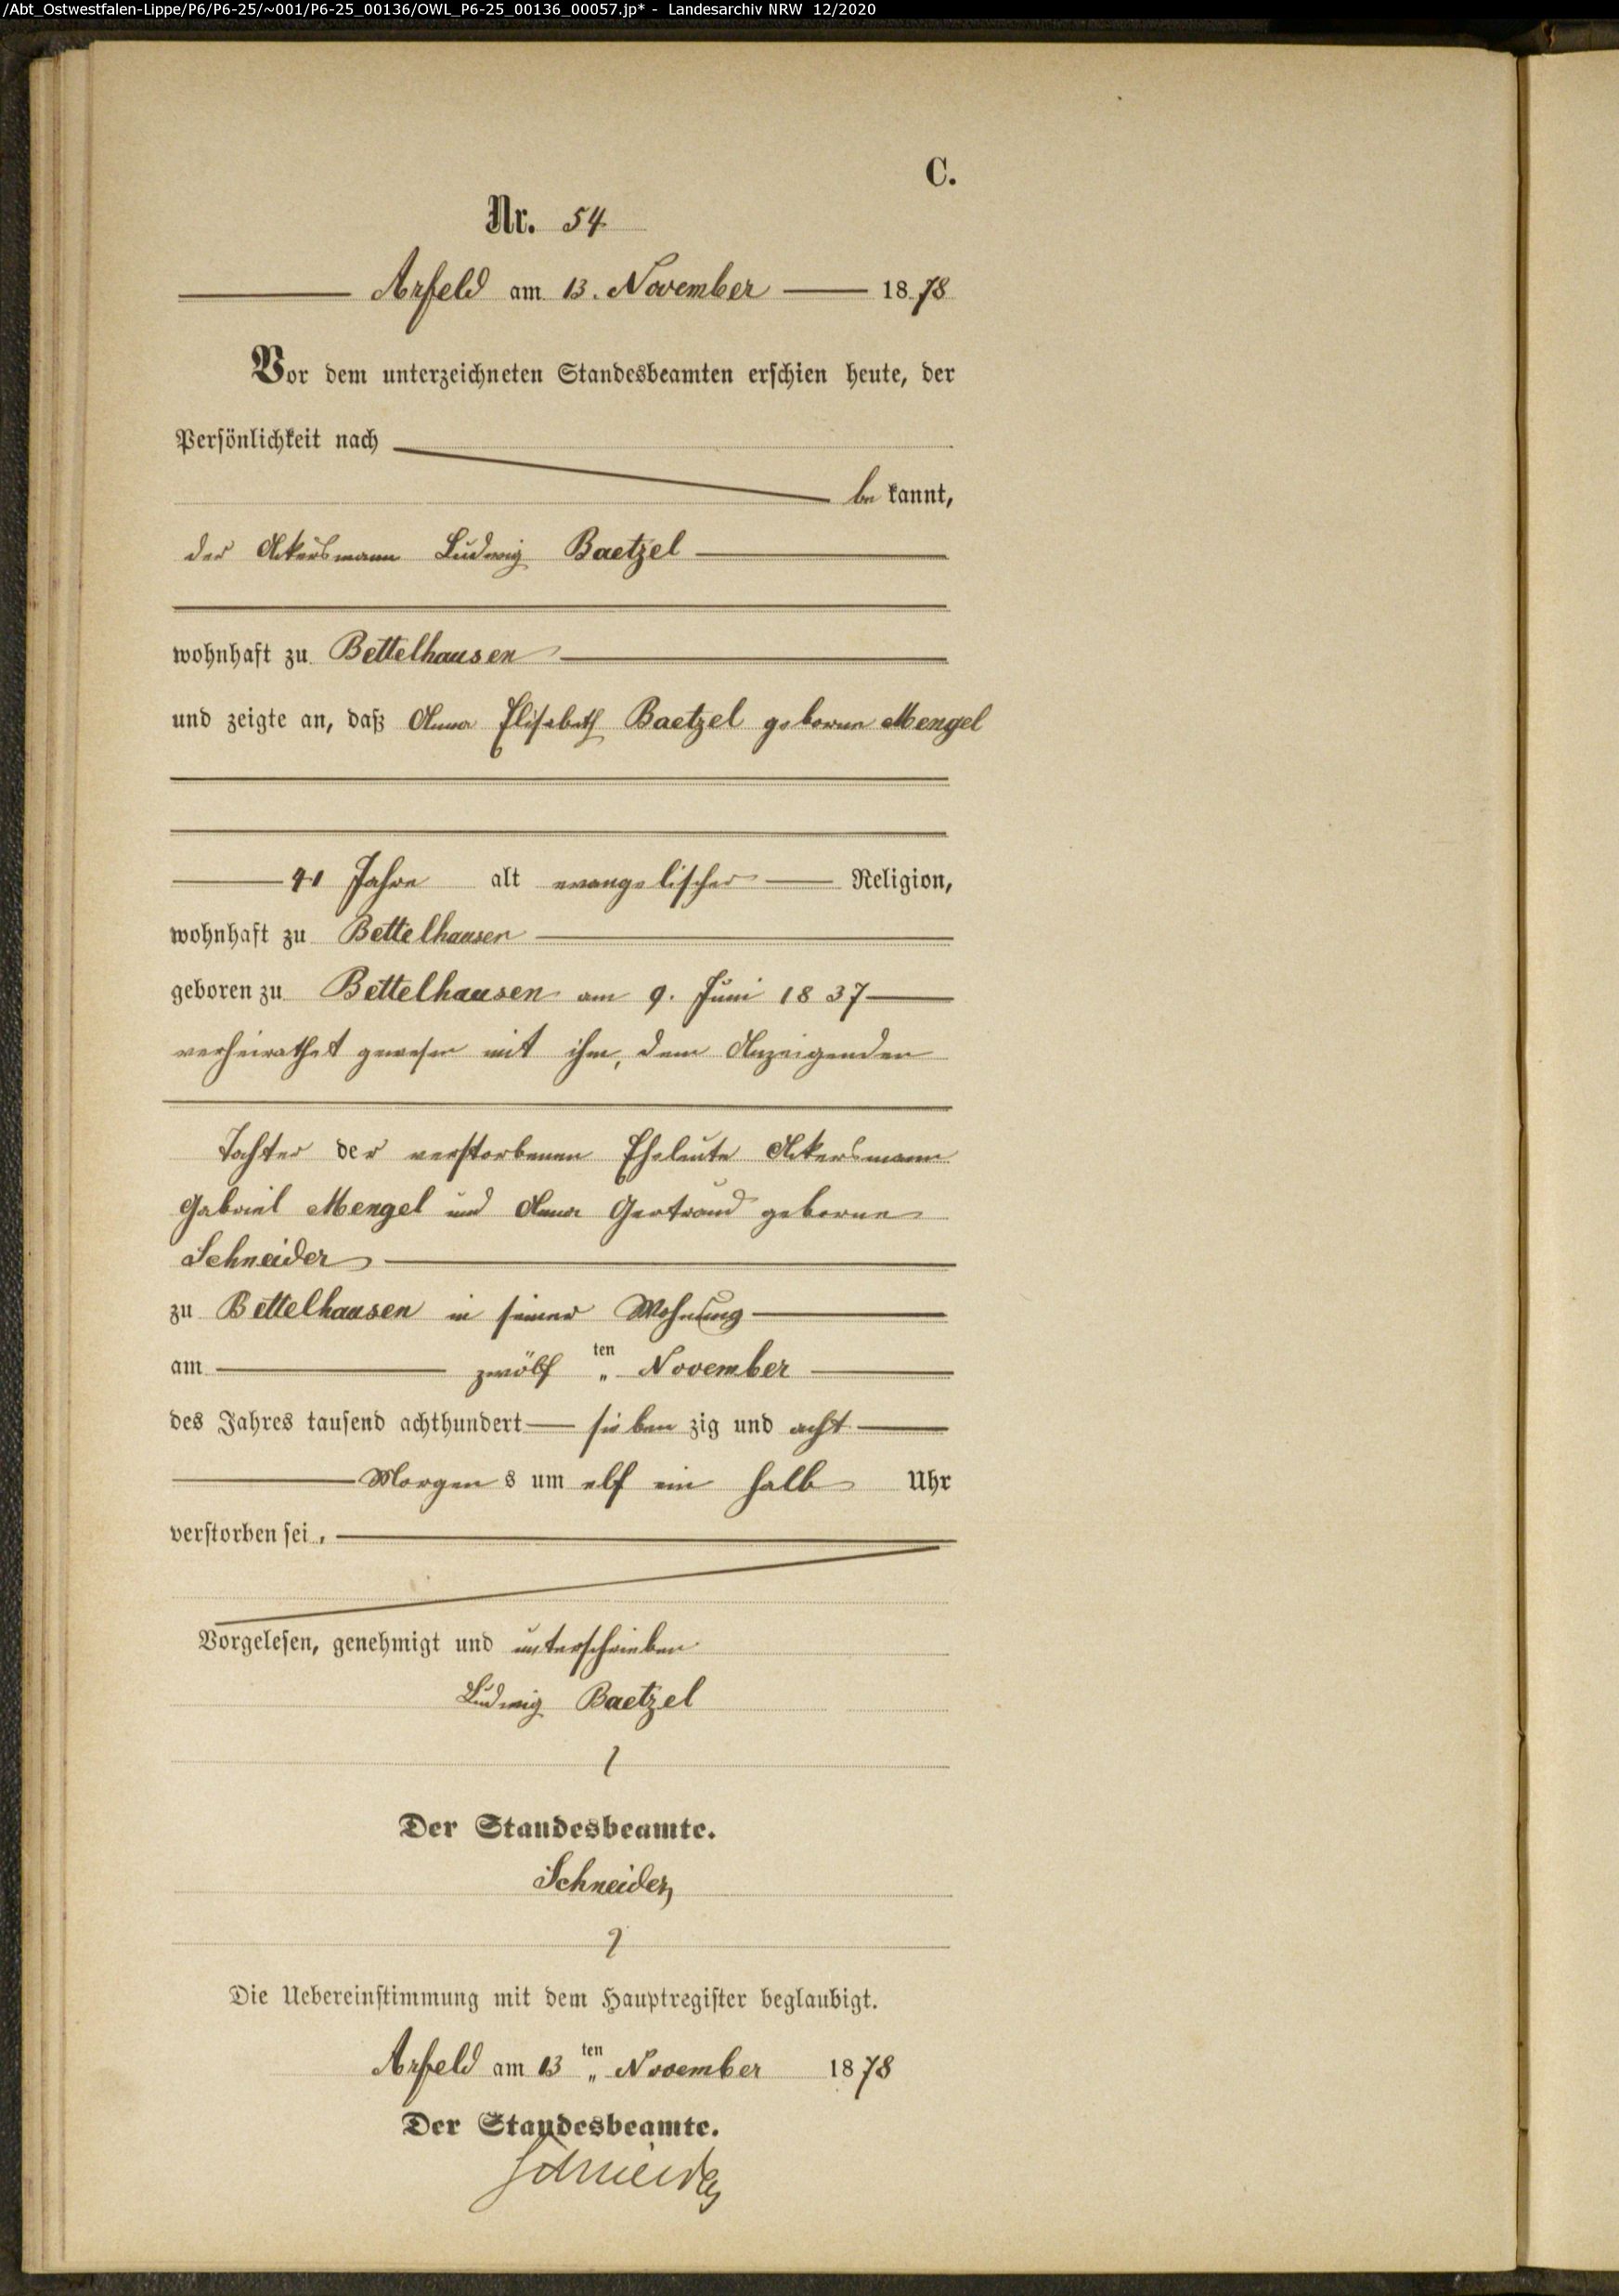 /Abt_Ostwestfalen-Lippe/P6/P6-25/~001/P6-25_00136/OWL_P6-25_00136_00057.jp* - Landesarchiv NRW 12/2020
C.
Nr. 54
Arfeld am 13. November 1878
Vor dem unterzeichneten Standesbeamten erschien heute, der
Persönlichkeit nach
bekannt,
der Ackersmann Ludwig Baetzel
wohnhaft zu Bettelhausen
und zeigte an, daß Anna Elisabeth Baetzel geborne Mengel
41 Jahre alt evangelischer Religion,
wohnhaft zu Bettelhausen
geboren zu Bettelhausen am 9. Juni 1837
verheirathet gewesen mit ihm, dem Anzeigenden
Tochter der verstorbenen Eheleute Ackersmann
Gabriel Mengel und Anna Gertraud geborne
Schneider
zu Bettelhausen in seiner Wohnung
am zwölf ten " November
des Jahres tausend achthundert sieben zig und acht
Morgens um elf ein halb Uhr
verstorben sei.
Vorgelesen, genehmigt und unterschrieben
Ludwig Baetzel
Der Standesbeamte.
Schneider
Die Uebereinstimmung mit dem Hauptregister beglaubigt.
Arfeld am 13 ten " November 1878
Der Standesbeamte.
Schneider